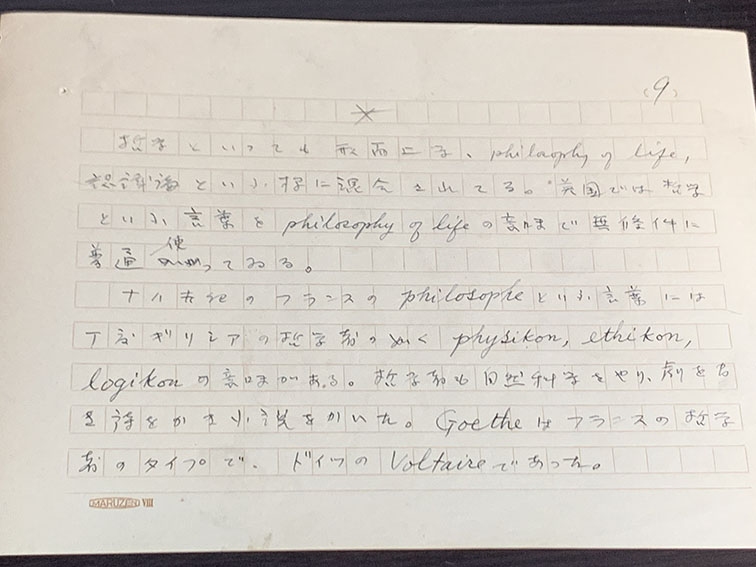 (9)
哲学といっても形而上学、philosophy of life,
認識論という様に混合されてる。英国では哲学
という言葉を philosophy of life の意味で無條件に
普通使ってゐる。
十八世紀のフランスの philosophe という言葉には
丁度ギリシアの哲学者の如く physikon, ethikon,
logikon の意味がある。哲学者も自然科学をやり、劇をかき
詩をかき小説をかいた。Goethe はフランスの哲学
者のタイプで、ドイツの Voltaire であった。
MARUZEN VIII